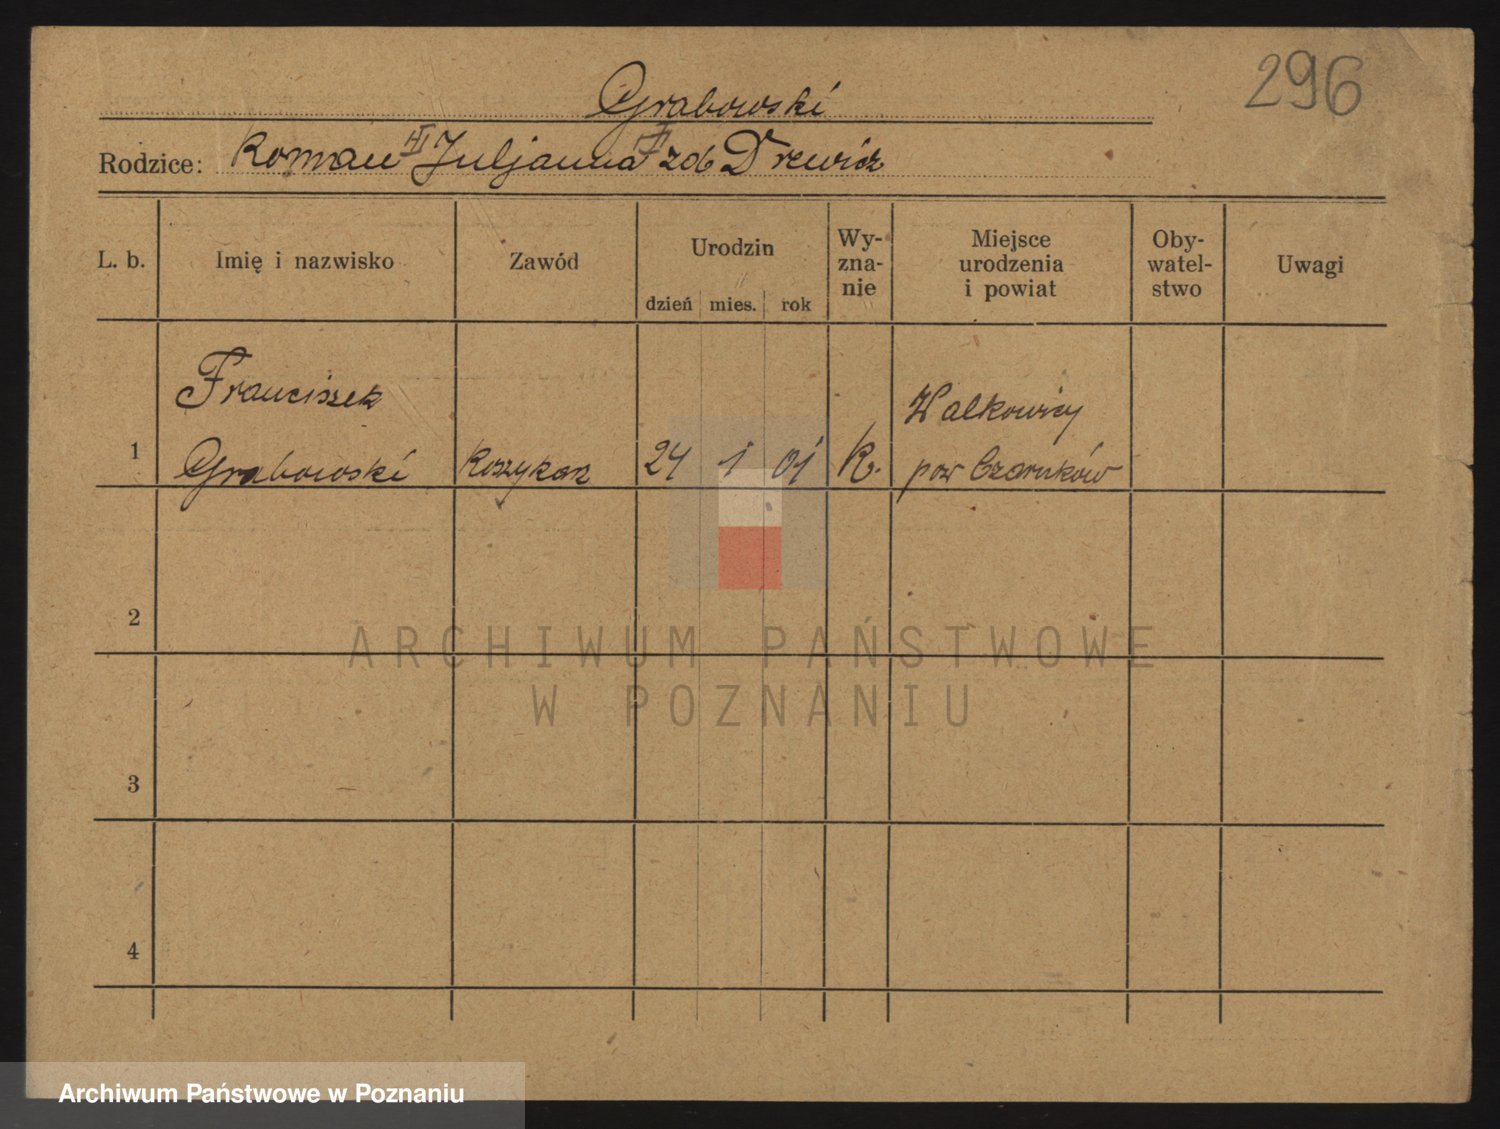 296
Grabowski
Rodzice: Roman Juljanna zd Drewicz
L. b.
Imię i nazwisko
Zawód
Urodzin
dzień mies. rok
Wy-
zna-
nie
Miejsce
urodzenia
i powiat
Oby-
watel-
stwo
Uwagi
1
Franciszek
Grabowski
Koszykarz
24 1 01
R.
Walkowicy
pow Czarnków
2
3
4
ARCHIWUM PAŃSTWOWE
W POZNANIU
Archiwum Państwowe w Poznaniu